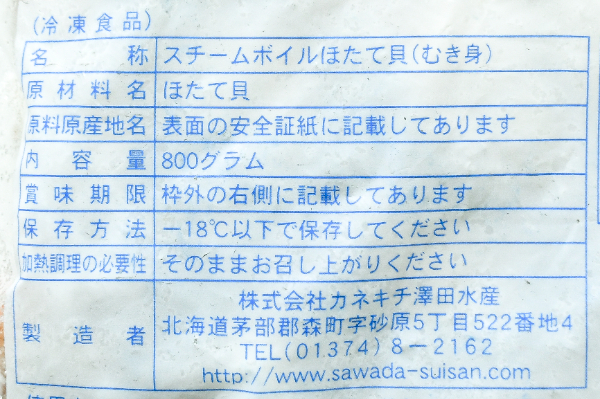 (冷凍食品)
名称 スチームボイルほたて貝(むき身)
原材料名 ほたて貝
原料原産地名 表面の安全証紙に記載してあります
内容量 800グラム
賞味期限 枠外の右側に記載してあります
保存方法 -18℃以下で保存してください
加熱調理の必要性 そのままお召し上がりください
製造者 株式会社カネキチ澤田水産
北海道茅部郡森町字砂原5丁目522番地4
TEL(01374)8-2162
http://www.sawada-suisan.com